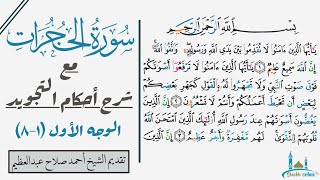 سُورَةُ الْحُجُرَاتِ
مع
شرح أحكام التجويد
الوجه الأول (١-٨)
تقديم الشيخ أحمد صلاح عبدالعظيم
بِسْمِ اللَّهِ الرَّحْمَٰنِ الرَّحِيمِ
يَٰٓأَيُّهَا الَّذِينَ ءَامَنُوا لَا تُقَدِّمُوا بَيْنَ يَدَيِ اللَّهِ وَرَسُولِهِ وَاتَّقُوا اللَّهَ
إِنَّ اللَّهَ سَمِيعٌ عَلِيمٌ ١ يَٰٓأَيُّهَا الَّذِينَ ءَامَنُوا لَا تَرْفَعُوٓا أَصْوَٰتَكُمْ
فَوْقَ صَوْتِ النَّبِيِّ وَلَا تَجْهَرُوا لَهُ بِالْقَوْلِ كَجَهْرِ بَعْضِكُمْ
لِبَعْضٍ أَن تَحْبَطَ أَعْمَٰلُكُمْ وَأَنتُمْ لَا تَشْعُرُونَ ٢ إِنَّ الَّذِينَ
يَغُضُّونَ أَصْوَٰتَهُمْ عِندَ رَسُولِ اللَّهِ أُولَٰٓئِكَ الَّذِينَ امْتَحَنَ اللَّهُ
قُلُوبَهُمْ لِلتَّقْوَىٰ لَهُم مَّغْفِرَةٌ وَأَجْرٌ عَظِيمٌ